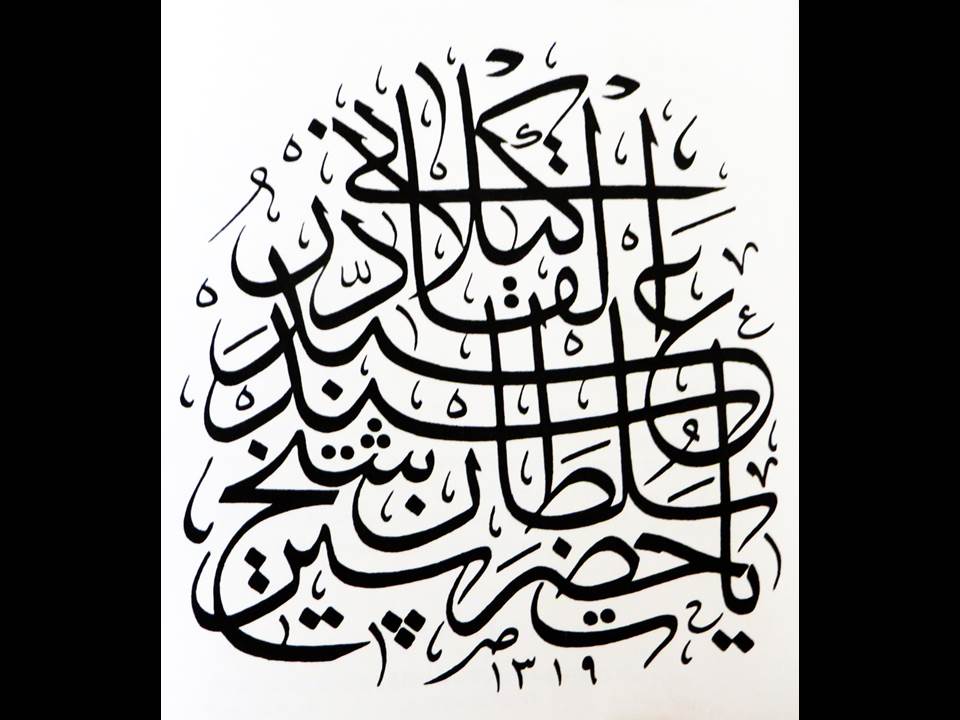 يا حضرت پير
سلطان شيخ
سيد عبد
القادر
كيلاني
١٣١٩